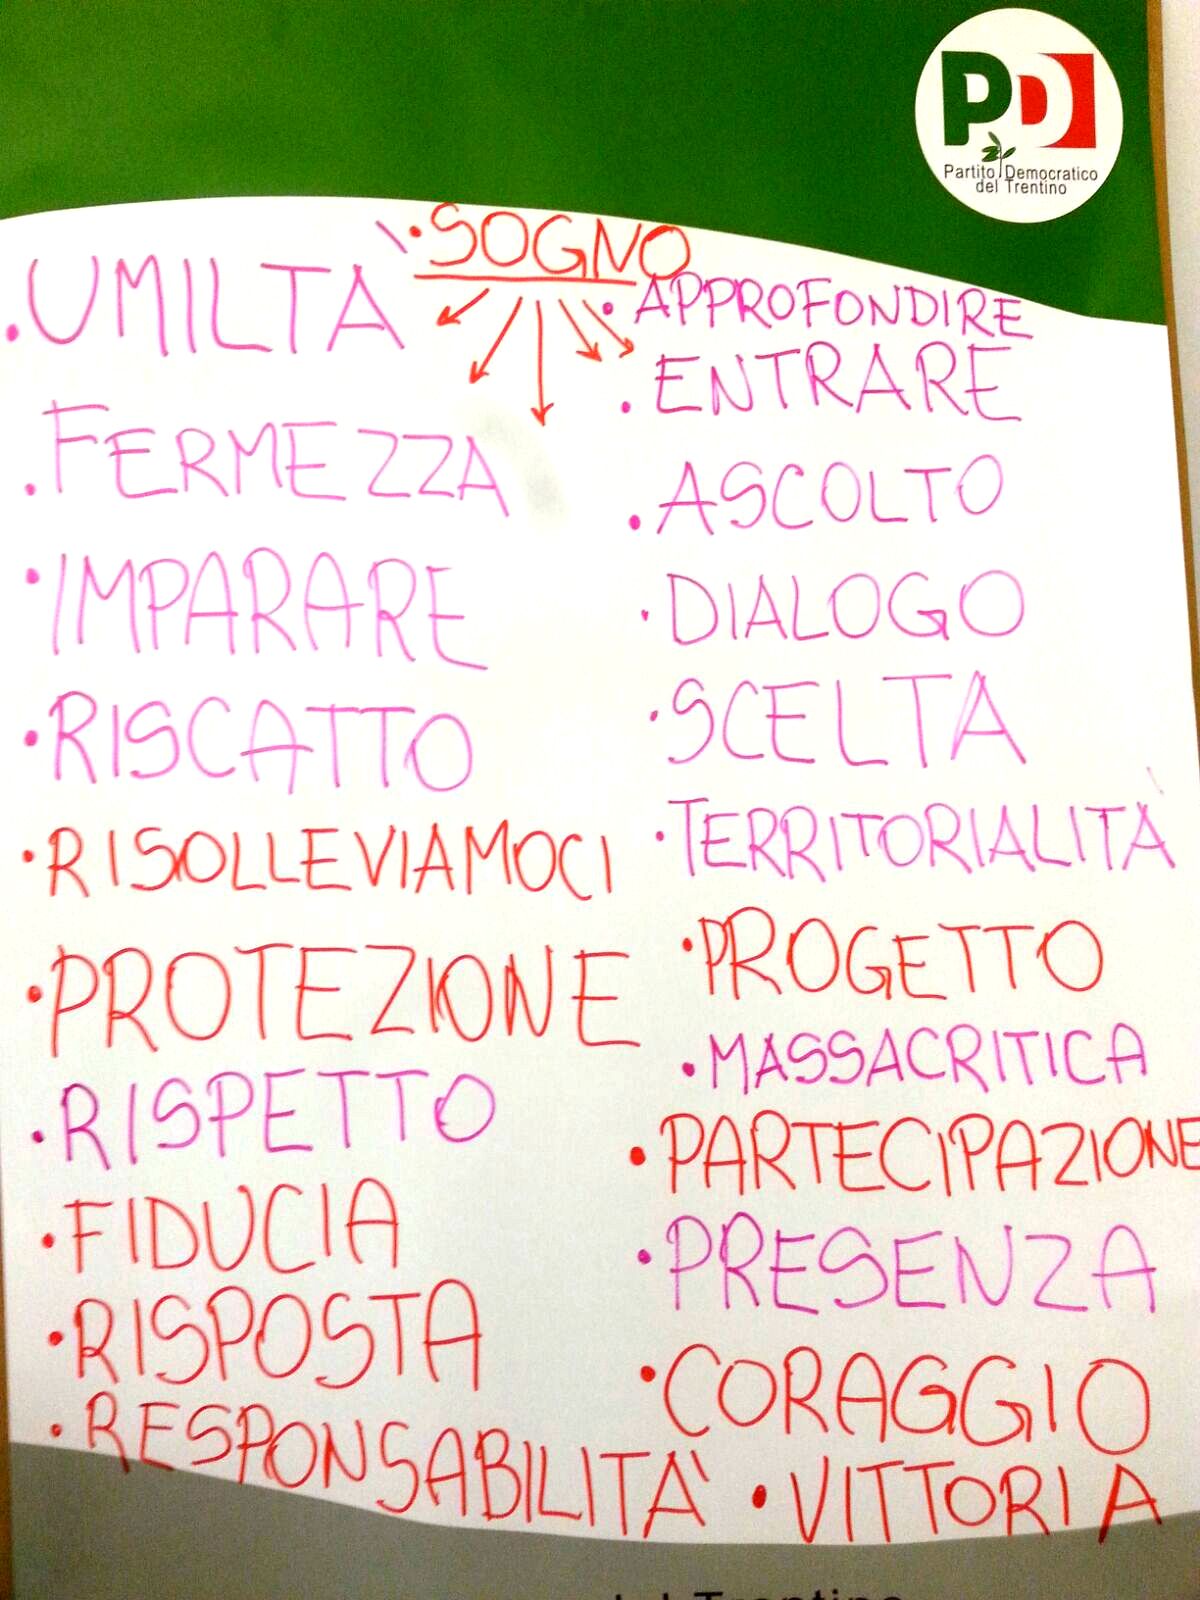 PD
Partito Democratico
del Trentino
• SOGNO
• UMILTÀ
• FERMEZZA
• IMPARARE
• RISCATTO
• RISOLLEVIAMOCI
• PROTEZIONE
• RISPETTO
• FIDUCIA
• RISPOSTA
• RESPONSABILITÀ
• APPROFONDIRE
• ENTRARE
• ASCOLTO
• DIALOGO
• SCELTA
• TERRITORIALITÀ
• PROGETTO
• MASSACRITICA
• PARTECIPAZIONE
• PRESENZA
• CORAGGIO
• VITTORIA